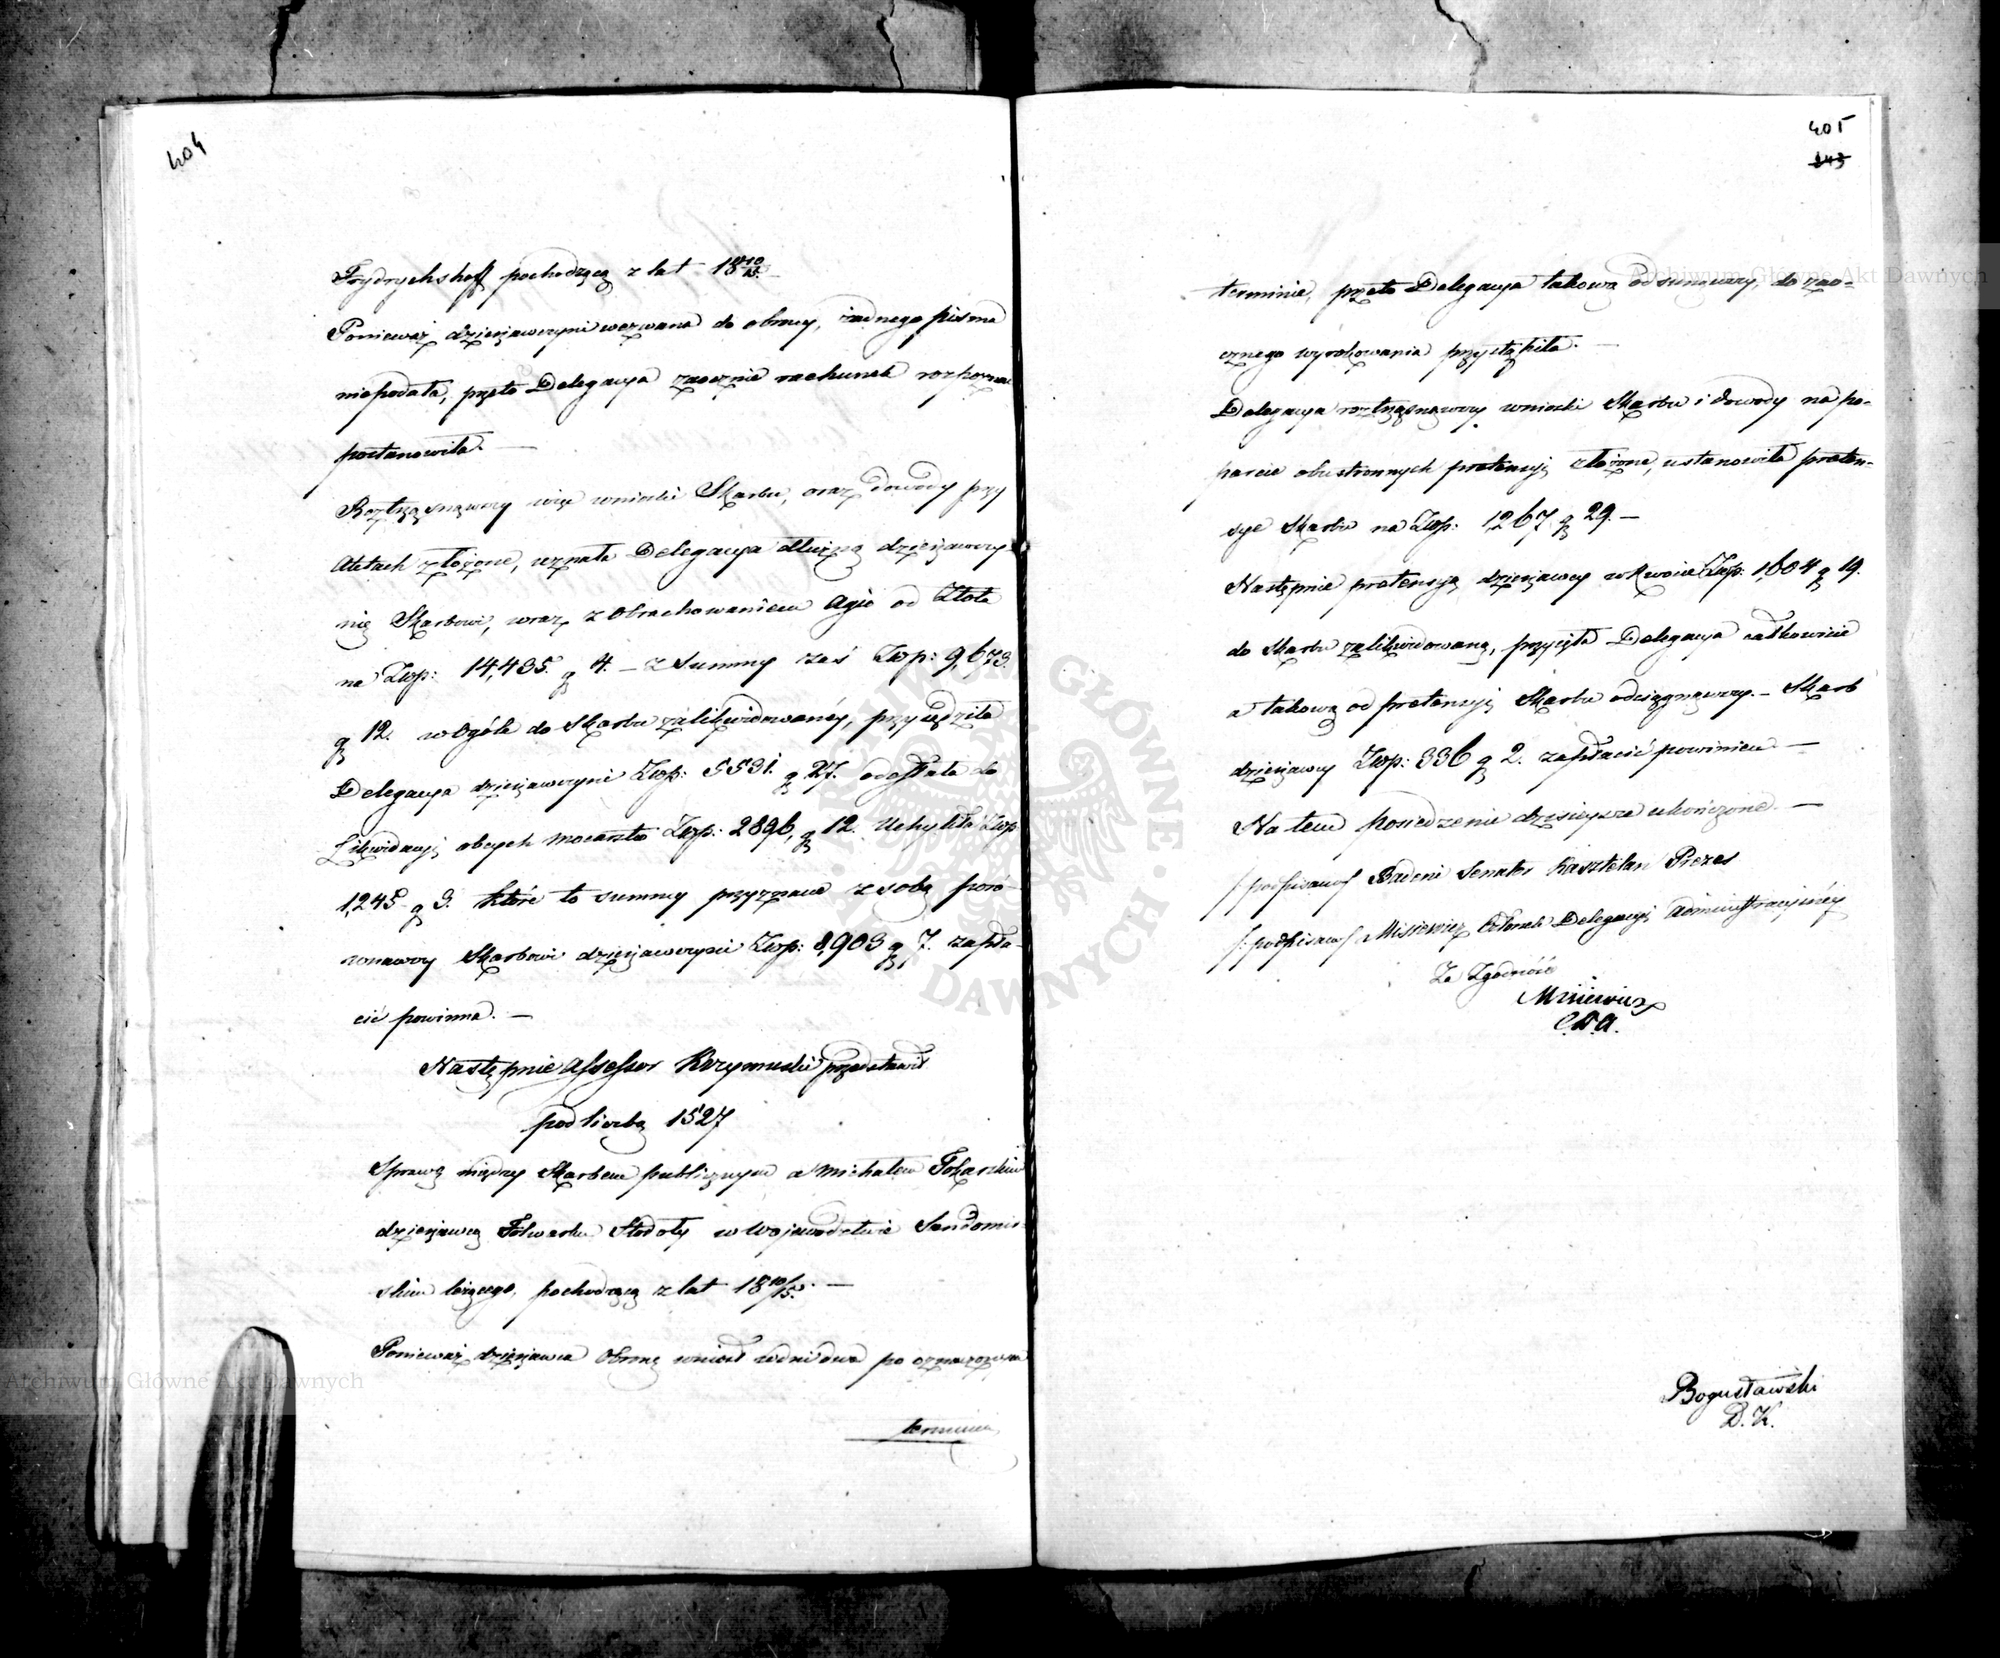 404
Frydrychshoff pochodzącą z lat 18 10/15.
Ponieważ dzierżawczyni wezwana do obrony, żadnego pisma
niepodała, przeto Delegacya zaocznie rachunek rozpoznać
postanowiła. —
Roztrząsnąwszy więc wnioski Skarbu, oraz dowody przy
Aktach złożone, uznała Delegacya dłużną dzierżawczy-
nię Skarbowi, wraz z obrachowaniem Agio od Złota
na Złp: 14,435. g 4. — z Summy zaś Złp: 9,673.
g 12. w Ogóle do Skarbu zalikwidowanéy, przysądziła
Delegacya dzierżawczyni Złp: 5531. g 27. odesłała do
Likwidacyi obcych mocarstw Złp: 2896, g 12. Uchyliła Złp
1,245 g 3. które to summy przyznane z sobą poró-
wnawszy Skarbowi dzierżawczyni Złp: 8,903 g 7. zapła-
cić powinna. —
Następnie Assessor Krzymuski przedstawił
pod liczbą 1527
Sprawę między Skarbem publicznym a Michałem Tokarskim
dzierżawcą Folwarku Stodoły w Województwie Sandomir-
skim leżącego, pochodzącą z lat 18 10/15. —
Ponieważ dzierżawca Obronę wniósł w dni dwa po oznaczonym
terminie,
405
343
terminie, przeto Delegacya takową odsunąwszy, do zao-
cznego wyrokowania przystąpiła. —
Delegacya roztrząsnąwszy wnioski Skarbu i dowody na po-
parcie obustronnych pretensyi złożone, ustanowiła preten-
sye Skarbu na Złp: 1,267 g 29. —
Następnie pretensyą dzierżawcy w kwocie Złp: 1,604 g 19.
do Skarbu zalikwidowaną, przyjęła Delegacya całkowicie
a takową od pretensyi Skarbu odciągnąwszy. — Skarb
dzierżawcy Złp: 336 g 2. zapłacić powinien. —
Na tem posiedzenie dzisieysze ukończone. —
/:podpisano/ Badeni Senator Kasztelan Prezes
/:podpisano/ Misiewicz Członek Delegacyi Administracyinéy
Za Zgodność
Misiewicz
C.D.A.
Bogusławski
D.K.
Archiwum Główne Akt Dawnych
Archiwum Główne Akt Dawnych
ARCHIWUM GŁÓWNE · AKT DAWNYCH ·